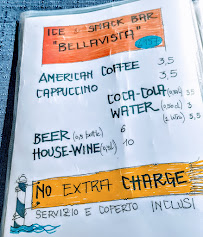 ICE & SNACK BAR
"BELLAVISTA"
AMERICAN COFFEE 3,5
CAPPUCCINO 3,5
COCA-COLA 3,5
WATER 3
BEER (0,5 bottle) 6
HOUSE-WINE (0,5l) 10
NO EXTRA CHARGE
SERVIZIO E COPERTO INCLUSI